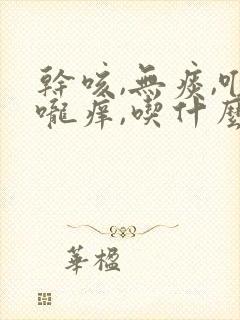 幹咳,無痰,
嚨癢,喫什麼
華楹